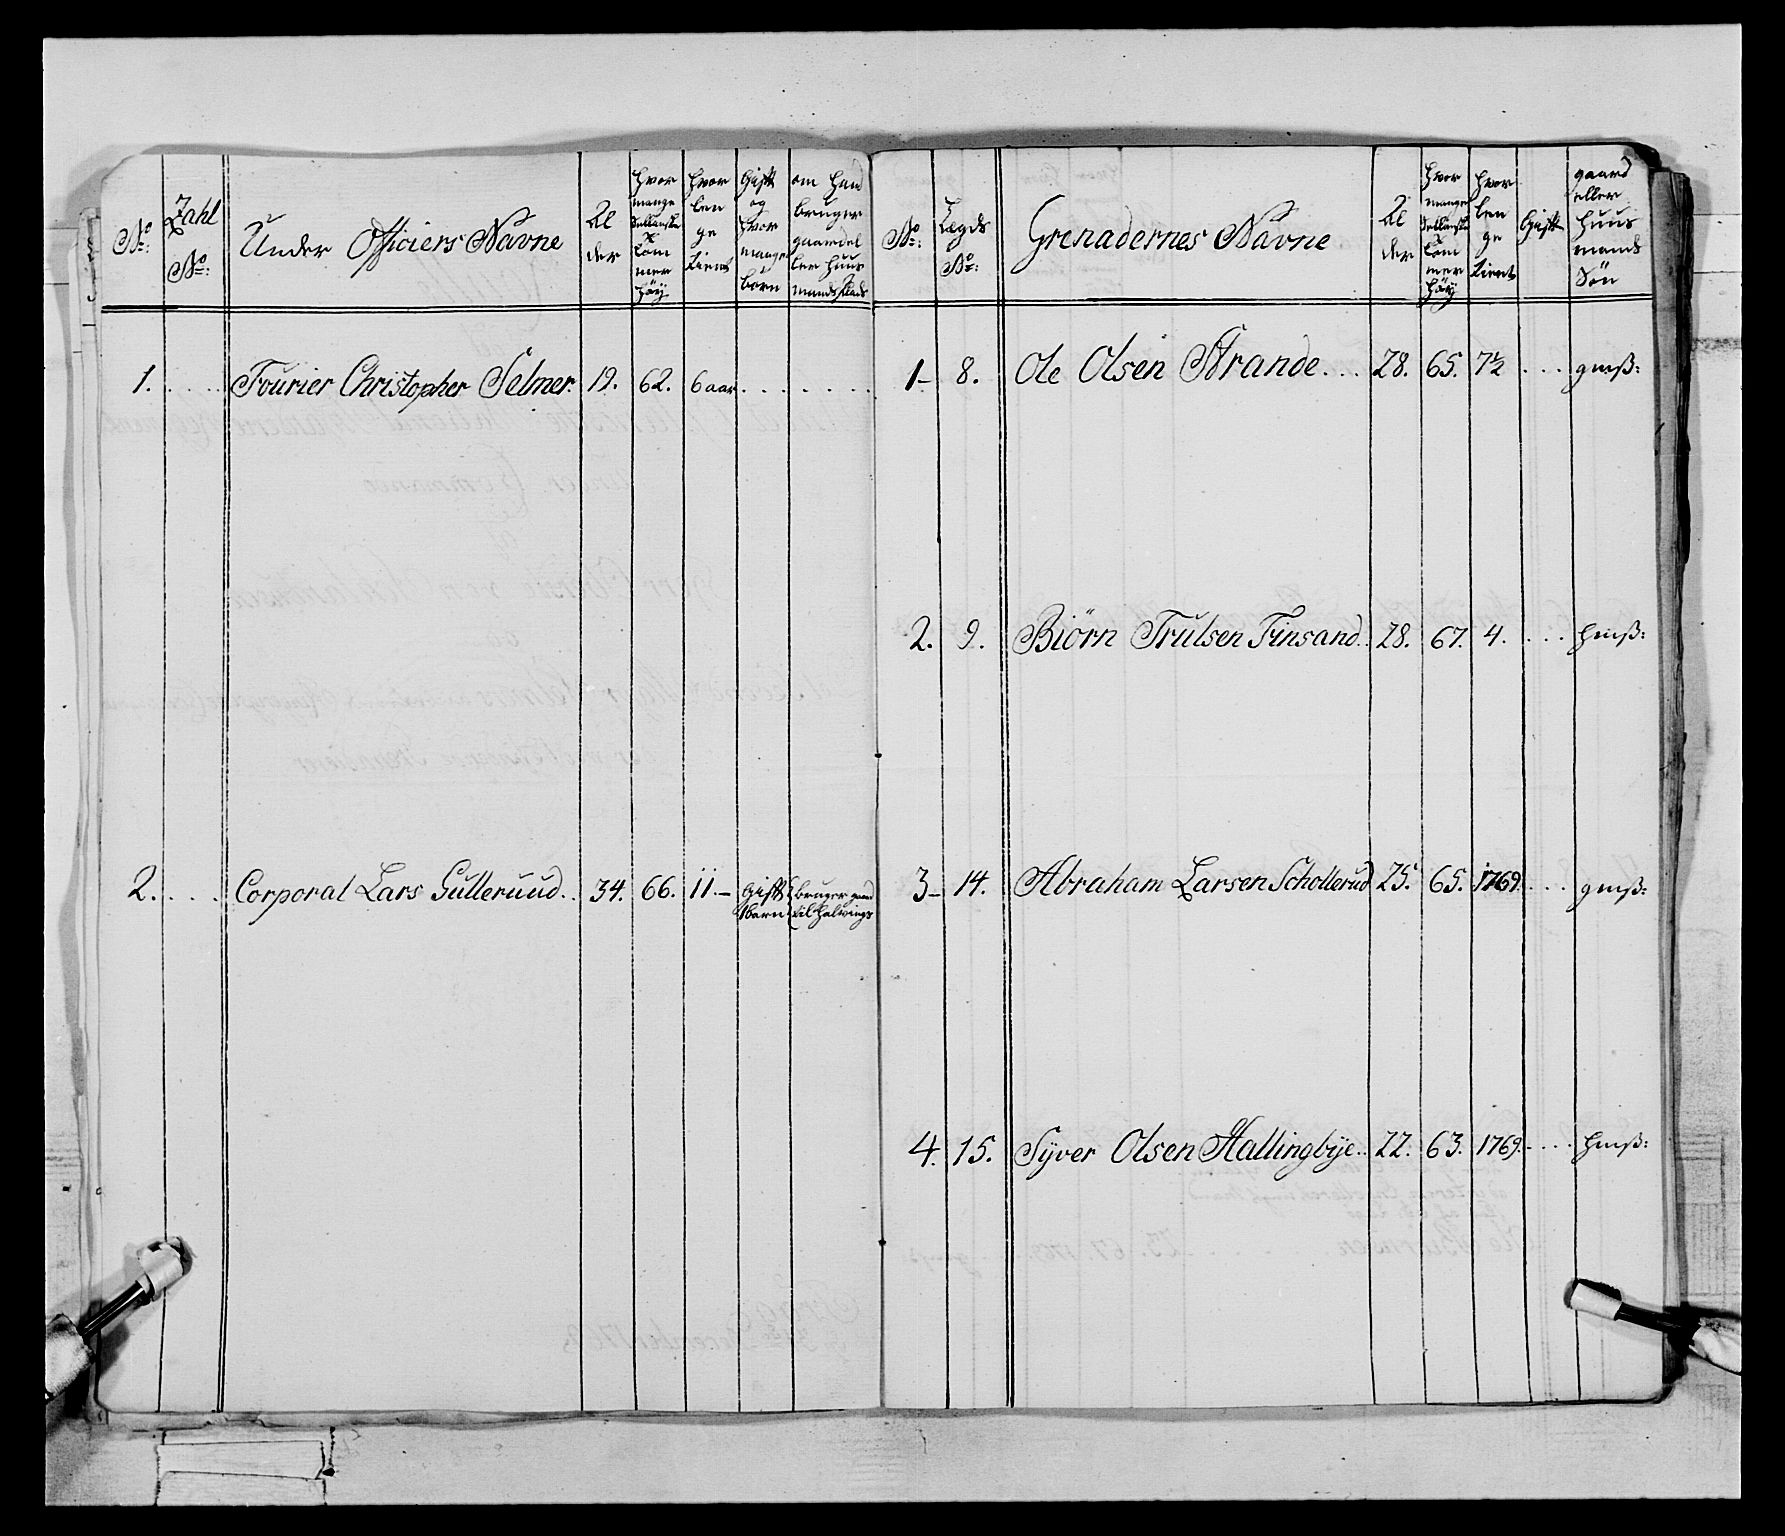 No:
Tahl No:
Under Officiers Navne
Al der
hvor mange Sellanske Tom mer höÿ
hvor len ge tient
Gift og hvor mange börn
om hand bruger gaard el ler huus mands Plads
1. . . . . Fourier Christopher Selmer. 19. 62. 6 aar . . . . . . .
2. . . . . Corporal Lars Gulleruud. . 34. 66. 11.– Gift 1 barn bruger gaard til
No:
Lægds No:
Grenadernes Navne
Al der
hvor mange Sellanske Tom mer höÿ
hvor len ge tient
Gift
gaard eller huus mands Sön
1– 8. Ole Olsen Strande. . . 28. 65. 7½ . . . gmß:
2. 9. Biörn Trulsen Finsand. . 28. 67. 4. . . . hmß:
3– 14. Abraham Larsen Schollerud 25. 65. 1769. . . . gmß:
4. 15. Sÿver Olsen Hallingbÿe. . 22. 63. 1769. . . . hmß: